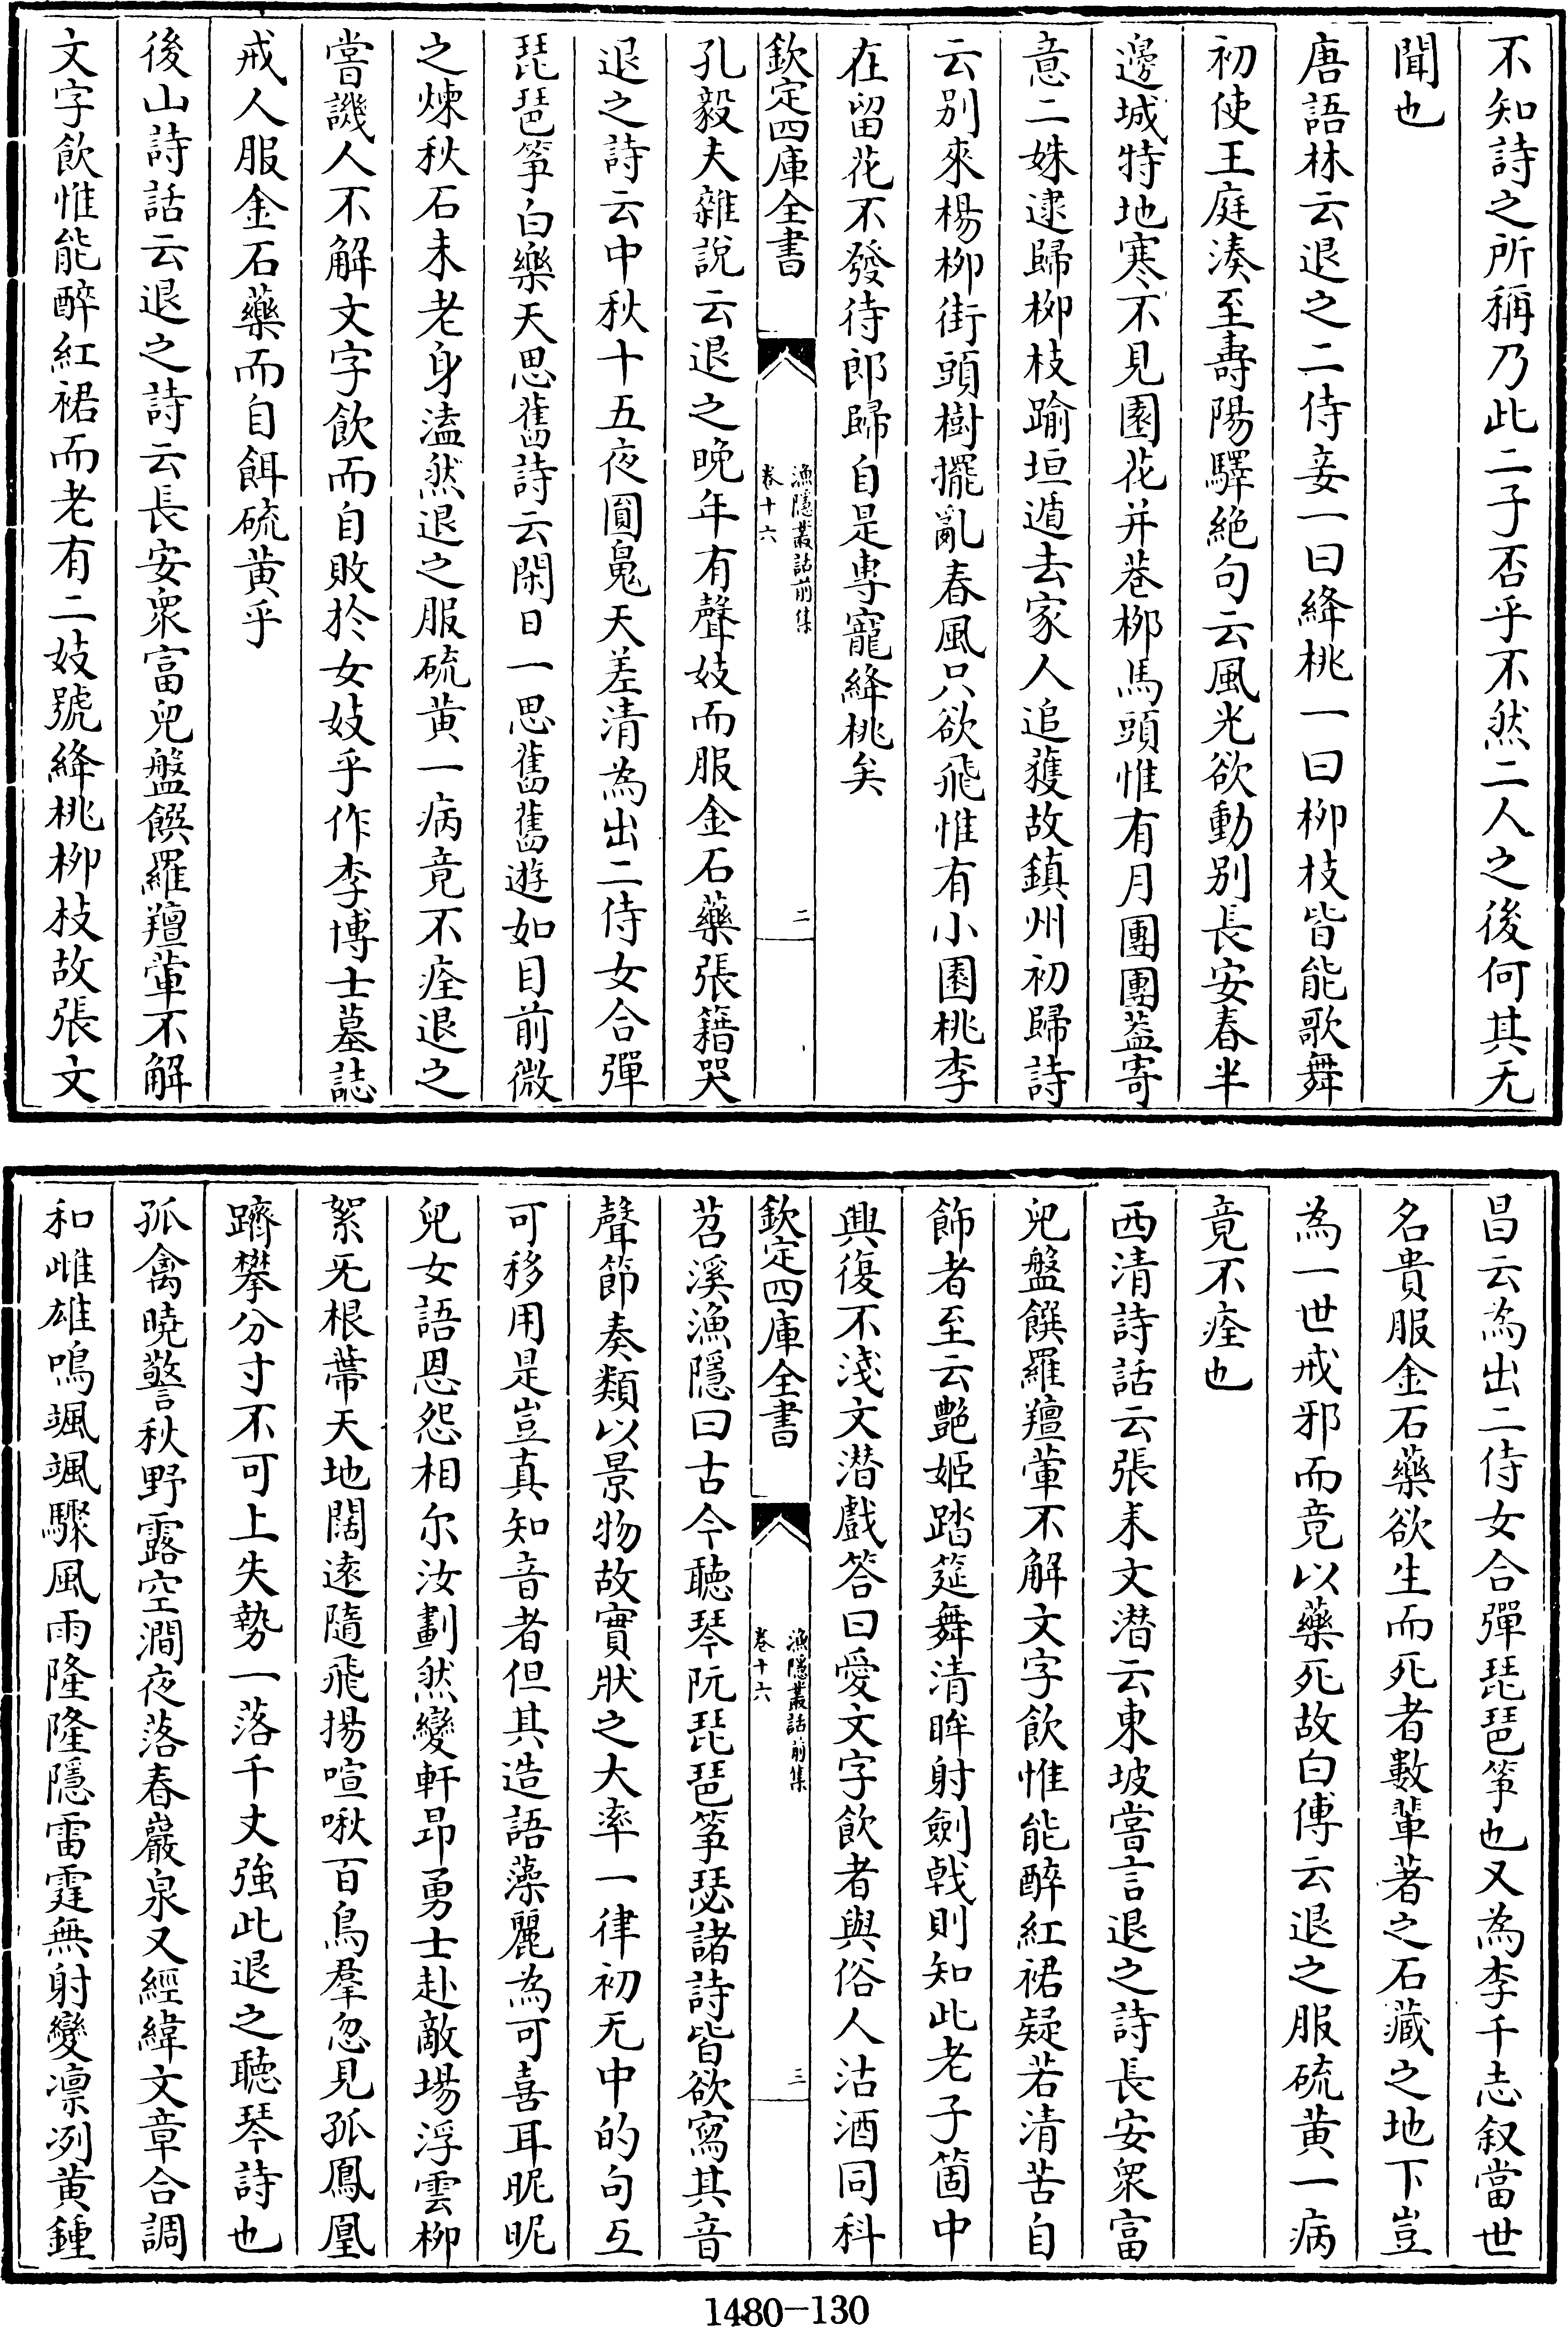 不知詩之所稱乃此二子否乎不然二人之後何其无
聞也
唐語林云退之二侍妾一曰絳桃一曰柳枝皆能歌舞
初使王庭湊至壽陽驛絶句云風光欲動别長安春半
邊城特地寒不見園花并巷柳馬頭惟有月團團葢寄
意二姝逮歸柳枝踰垣遁去家人追獲故鎮州初歸詩
云别來楊柳街頭樹擺亂春風只欲飛惟有小園桃李
在留花不發待郎歸自是専寵絳桃矣
欽定四庫全書
漁隱叢話前集
卷十六
二
孔毅夫雜說云退之晚年有聲妓而服金石藥張籍哭
退之詩云中秋十五夜圓䰟天差清為出二侍女合彈
琵琶筝白樂天思舊詩云閑日一思舊舊遊如目前微
之煉秋石未老身溘然退之服硫黄一病竟不痊退之
嘗譏人不解文字飲而自敗於女妓乎作李博士墓誌
戒人服金石藥而自餌硫黄乎
後山詩話云退之詩云長安衆富兒盤饌羅羶葷不解
文字飲惟能醉紅裙而老有二妓號絳桃柳枝故張文
昌云為出二侍女合彈琵琶筝也又為李千志叙當世
名貴服金石藥欲生而死者數輩著之石藏之地下豈
為一世戒邪而竟以藥死故白傅云退之服硫黄一病
竟不痊也
西清詩話云張耒文潜云東坡嘗言退之詩長安衆富
兒盤饌羅羶葷不解文字飲惟能醉紅裙疑若清苦自
飾者至云艷姬踏筵舞清眸射劍戟則知此老子箇中
興復不淺文潜戲答曰愛文字飲者與俗人沽酒同科
欽定四庫全書
漁隱叢話前集
卷十六
三
苕溪漁隱曰古今聽琴阮琵琶筝瑟諸詩皆欲寫其音
聲節奏類以景物故實狀之大率一律初无中的句互
可移用是豈真知音者但其造語藻麗為可喜耳昵昵
兒女語恩怨相尔汝劃然變軒昂勇士赴敵場浮雲柳
絮旡根蔕天地闊逺隨飛揚喧啾百鳥羣忽見孤鳳凰
躋攀分寸不可上失勢一落千丈強此退之聽琴詩也
孤禽曉警秋野露空澗夜落春巖泉又經緯文章合調
和雌雄鳴颯颯驟風雨隆隆隱雷霆無射變凛冽黄鍾
1480-130